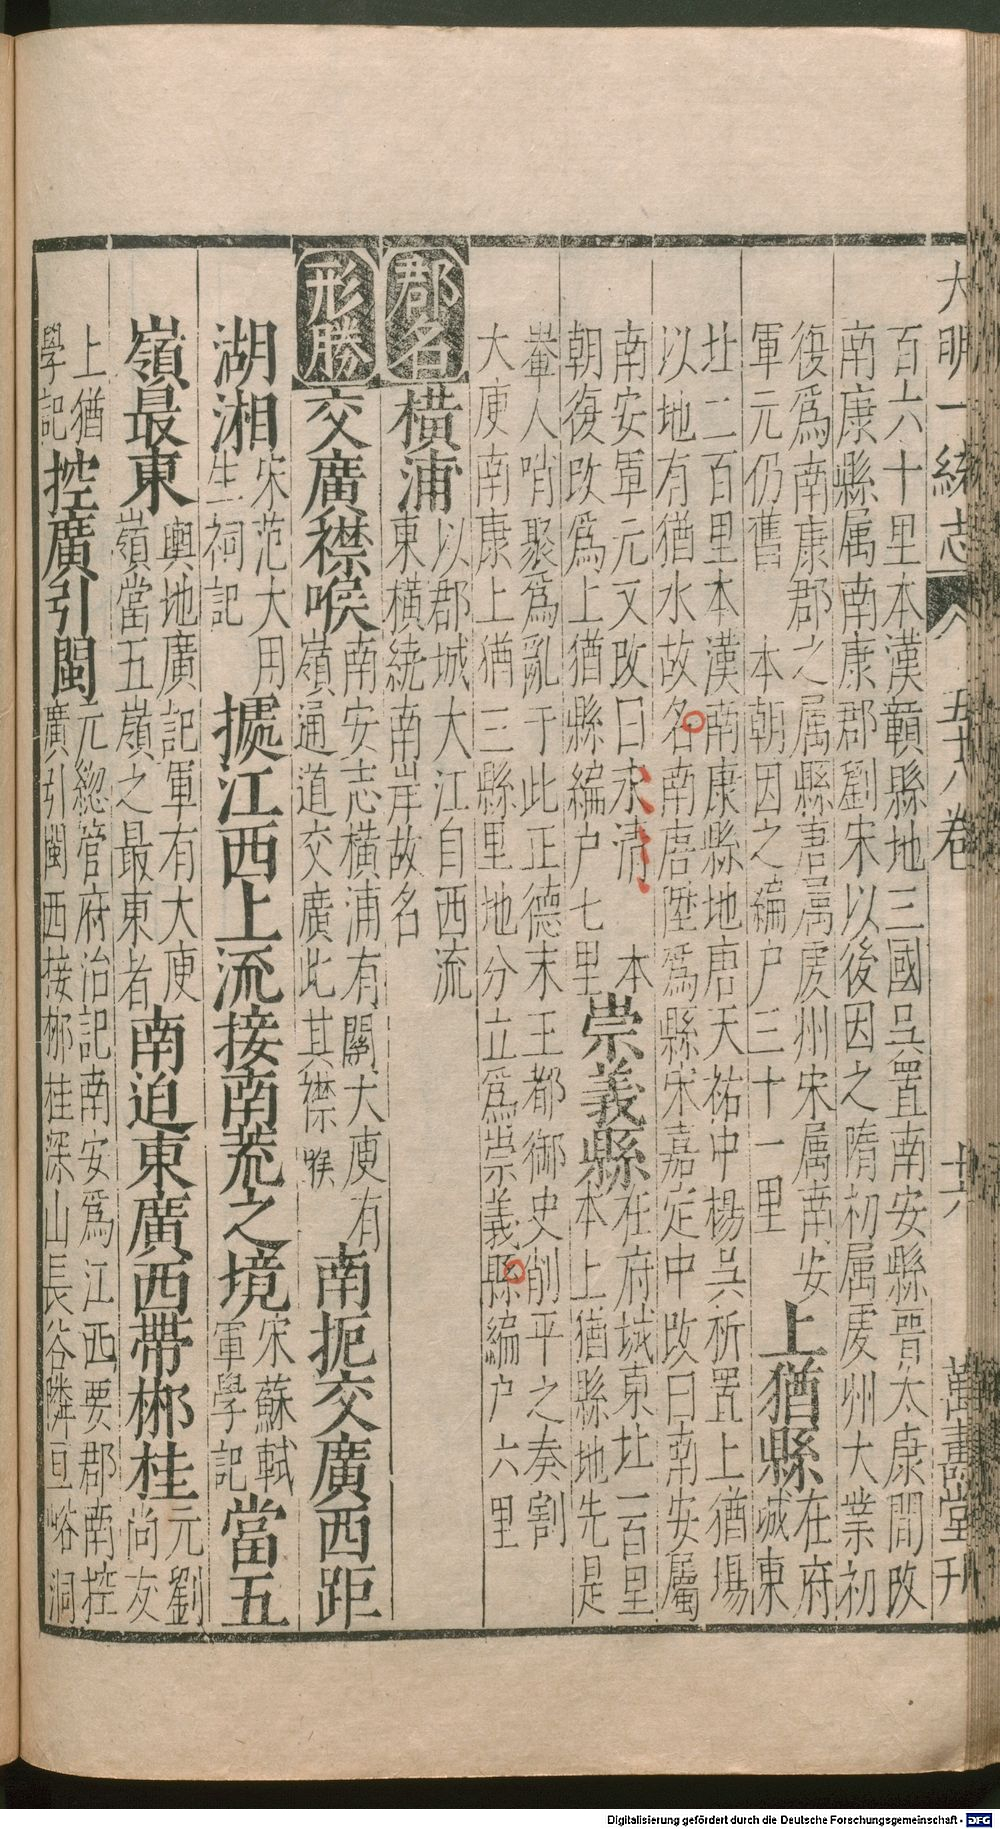 大明一統志 五十八卷 十六 萬壽堂刊
百六十里本漢贛縣地三國吳置南安縣晉太康間改
南康縣属南康郡劉宋以後因之隋初属虔州大業初
役爲南康郡之属縣唐属虔州宋属南安
軍元仍舊 本朝因之編户三十一里
上猶縣
在府
城東
北二百里本漢南康縣地唐天祐中楊吳析置上猶場
以地有猶水故名南唐陞爲縣宋嘉定中改曰南安屬
南安軍元又改曰永清 本
朝復改爲上猶縣編户七里
崇義縣
在府城東北一百里
本上猶縣地先是
輋人哨聚爲亂于此正德末王都御史削平之奏割
大庾南康上猶三縣里地分立爲崇義縣編户六里
郡名 橫浦
以郡城大江自西流
東橫繞南岸故名
形勝 交廣襟喉
南安志橫浦有關大庾有
嶺通道交廣此其襟喉
南扼交廣西距
湖湘
宋范大用
生祠記
據江西上流接南荒之境
宋蘇軾
軍學記
當五
嶺最東
輿地廣記軍有大庾
嶺當五嶺之最東者
南迫東廣西帶郴桂
元劉
尚友
上猶
學記
控廣引閩
元緫管府治記南安爲江西要郡南控
廣引閩西接郴桂深山長谷隣亘峪洞
Digitalisierung gefördert durch die Deutsche Forschungsgemeinschaft - DFG